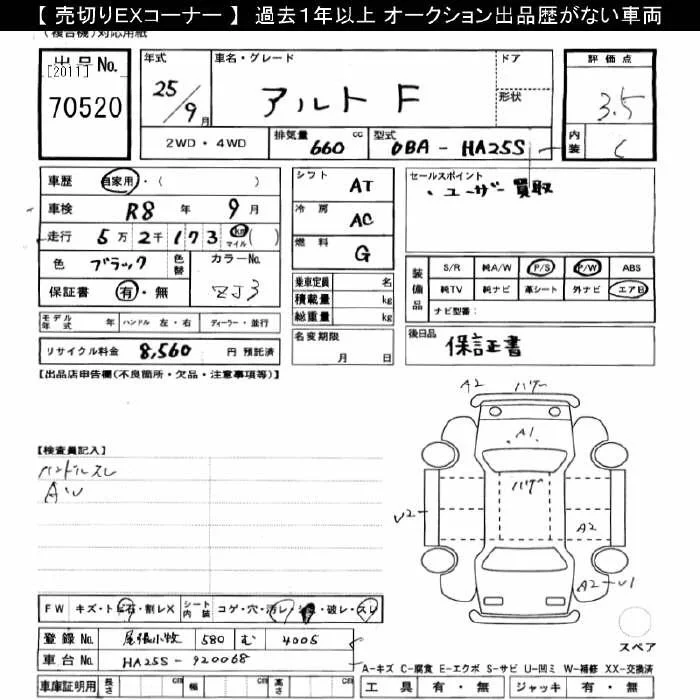 【 売切りEXコーナー 】 過去1年以上 オークション出品歴がない車両
(複合機)対応用紙
出品No.
[2011]
70520
年式
25/9月
車名・グレード
アルト F
ドア
形状
2WD・4WD
排気量 660 cc
型式 DBA - HA25S
評価点
3.5
内装
C
車歴 自家用・( )
車検 R8 年 9 月
走行 5万2千173 km マイル ( )
色 ブラック 色替 カラーNo.
保証書 有・無 ZJ3
モデル年式 年 ハンドル 左・右 ディーラー・並行
リサイクル料金 8,560 円 預託済
シフト AT
冷房 AC
燃料 G
乗車定員 名
積載量 kg
総重量 kg
名変期限
月 日
セールスポイント
、ユーザー買取
装備品
S/R 純A/W P/S P/W ABS
純TV 純ナビ 革シート 外ナビ エアB
ナビ型番:
後日品
保証書
【出品店申告欄(不良箇所・欠品・注意事項等)】
【検査員記入】
ハンドルスレ
A U
A2
A1
U2
A2
A2 U1
スペア
FW キズ・トビ石・割レX シート内装 コゲ・穴・汚レ・シミ・破レ・スレ
登録No. 尾張小牧 580 む 4005
車台No. HA25S - 920068
車庫証明用 長さ cm 幅 cm 高さ cm
A-キズ C-腐食 E-エクボ S-サビ U-凹ミ W-補修 XX-交換済
工具 有・無 ジャッキ 有・無